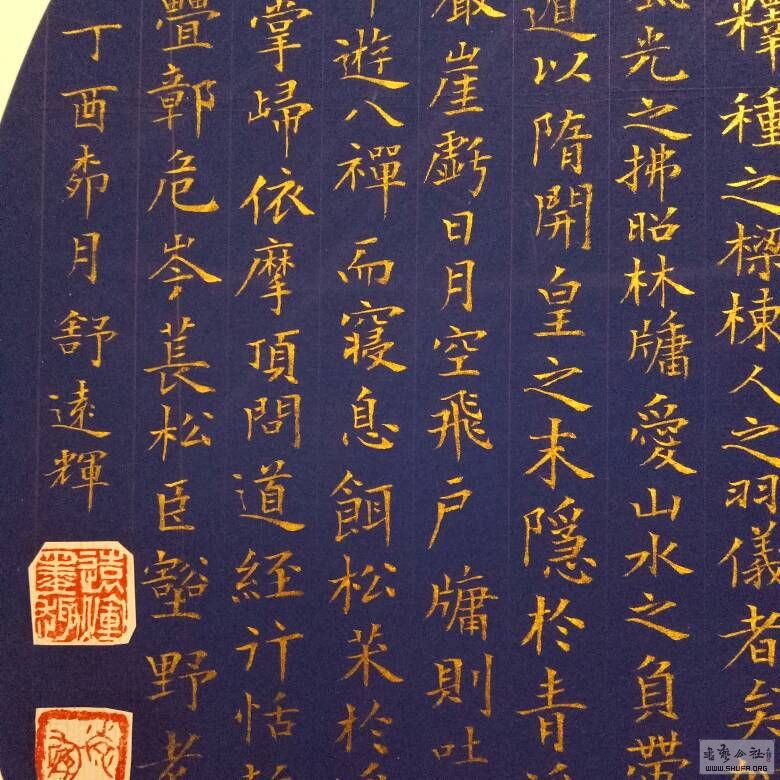 釋種之樑棟人之羽儀者矣
光之拂昭林牖愛山水之負帶
道以隋開皇之末隱於青
巖崖虧日月空飛戶牖則吐
遊八禪而寢息餌松茱於
掌歸依摩頂問道經行恬
疊鄣危岑萇松巨壑野者
丁酉茆月舒遠輝
遠輝墨緣
書藝公社
WWW.SHUFA.ORG